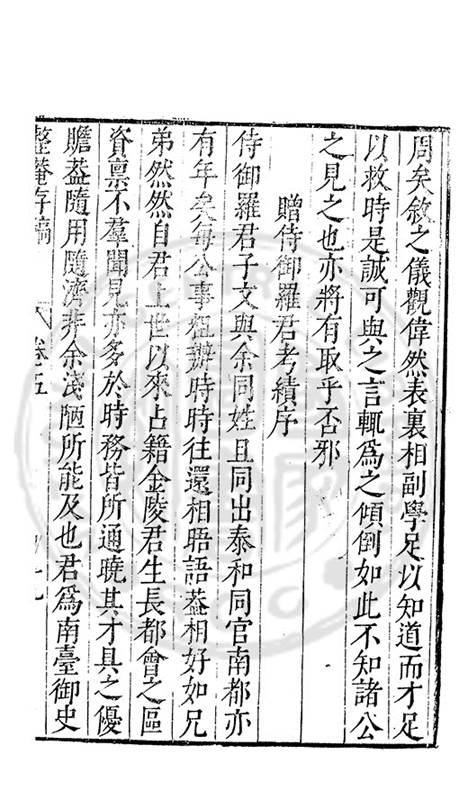 周矣敘之儀觀偉然表裏相副學足以知道而才足
以救時是誠可與之言輒爲之傾倒如此不知諸公
之見之也亦將有取乎否邪
贈侍御羅君考績序
侍御羅君子文與余同姓且同出泰和同官南都亦
有年矣每公事粗辦時時往還相晤語葢相好如兄
弟然然自君上世以來占籍金陵君生長都會之區
資禀不羣聞見亦多於時務皆所通曉其才具之優
贍葢隨用隨濟非余淺陋所能及也君爲南臺御史
整菴存稿
卷五